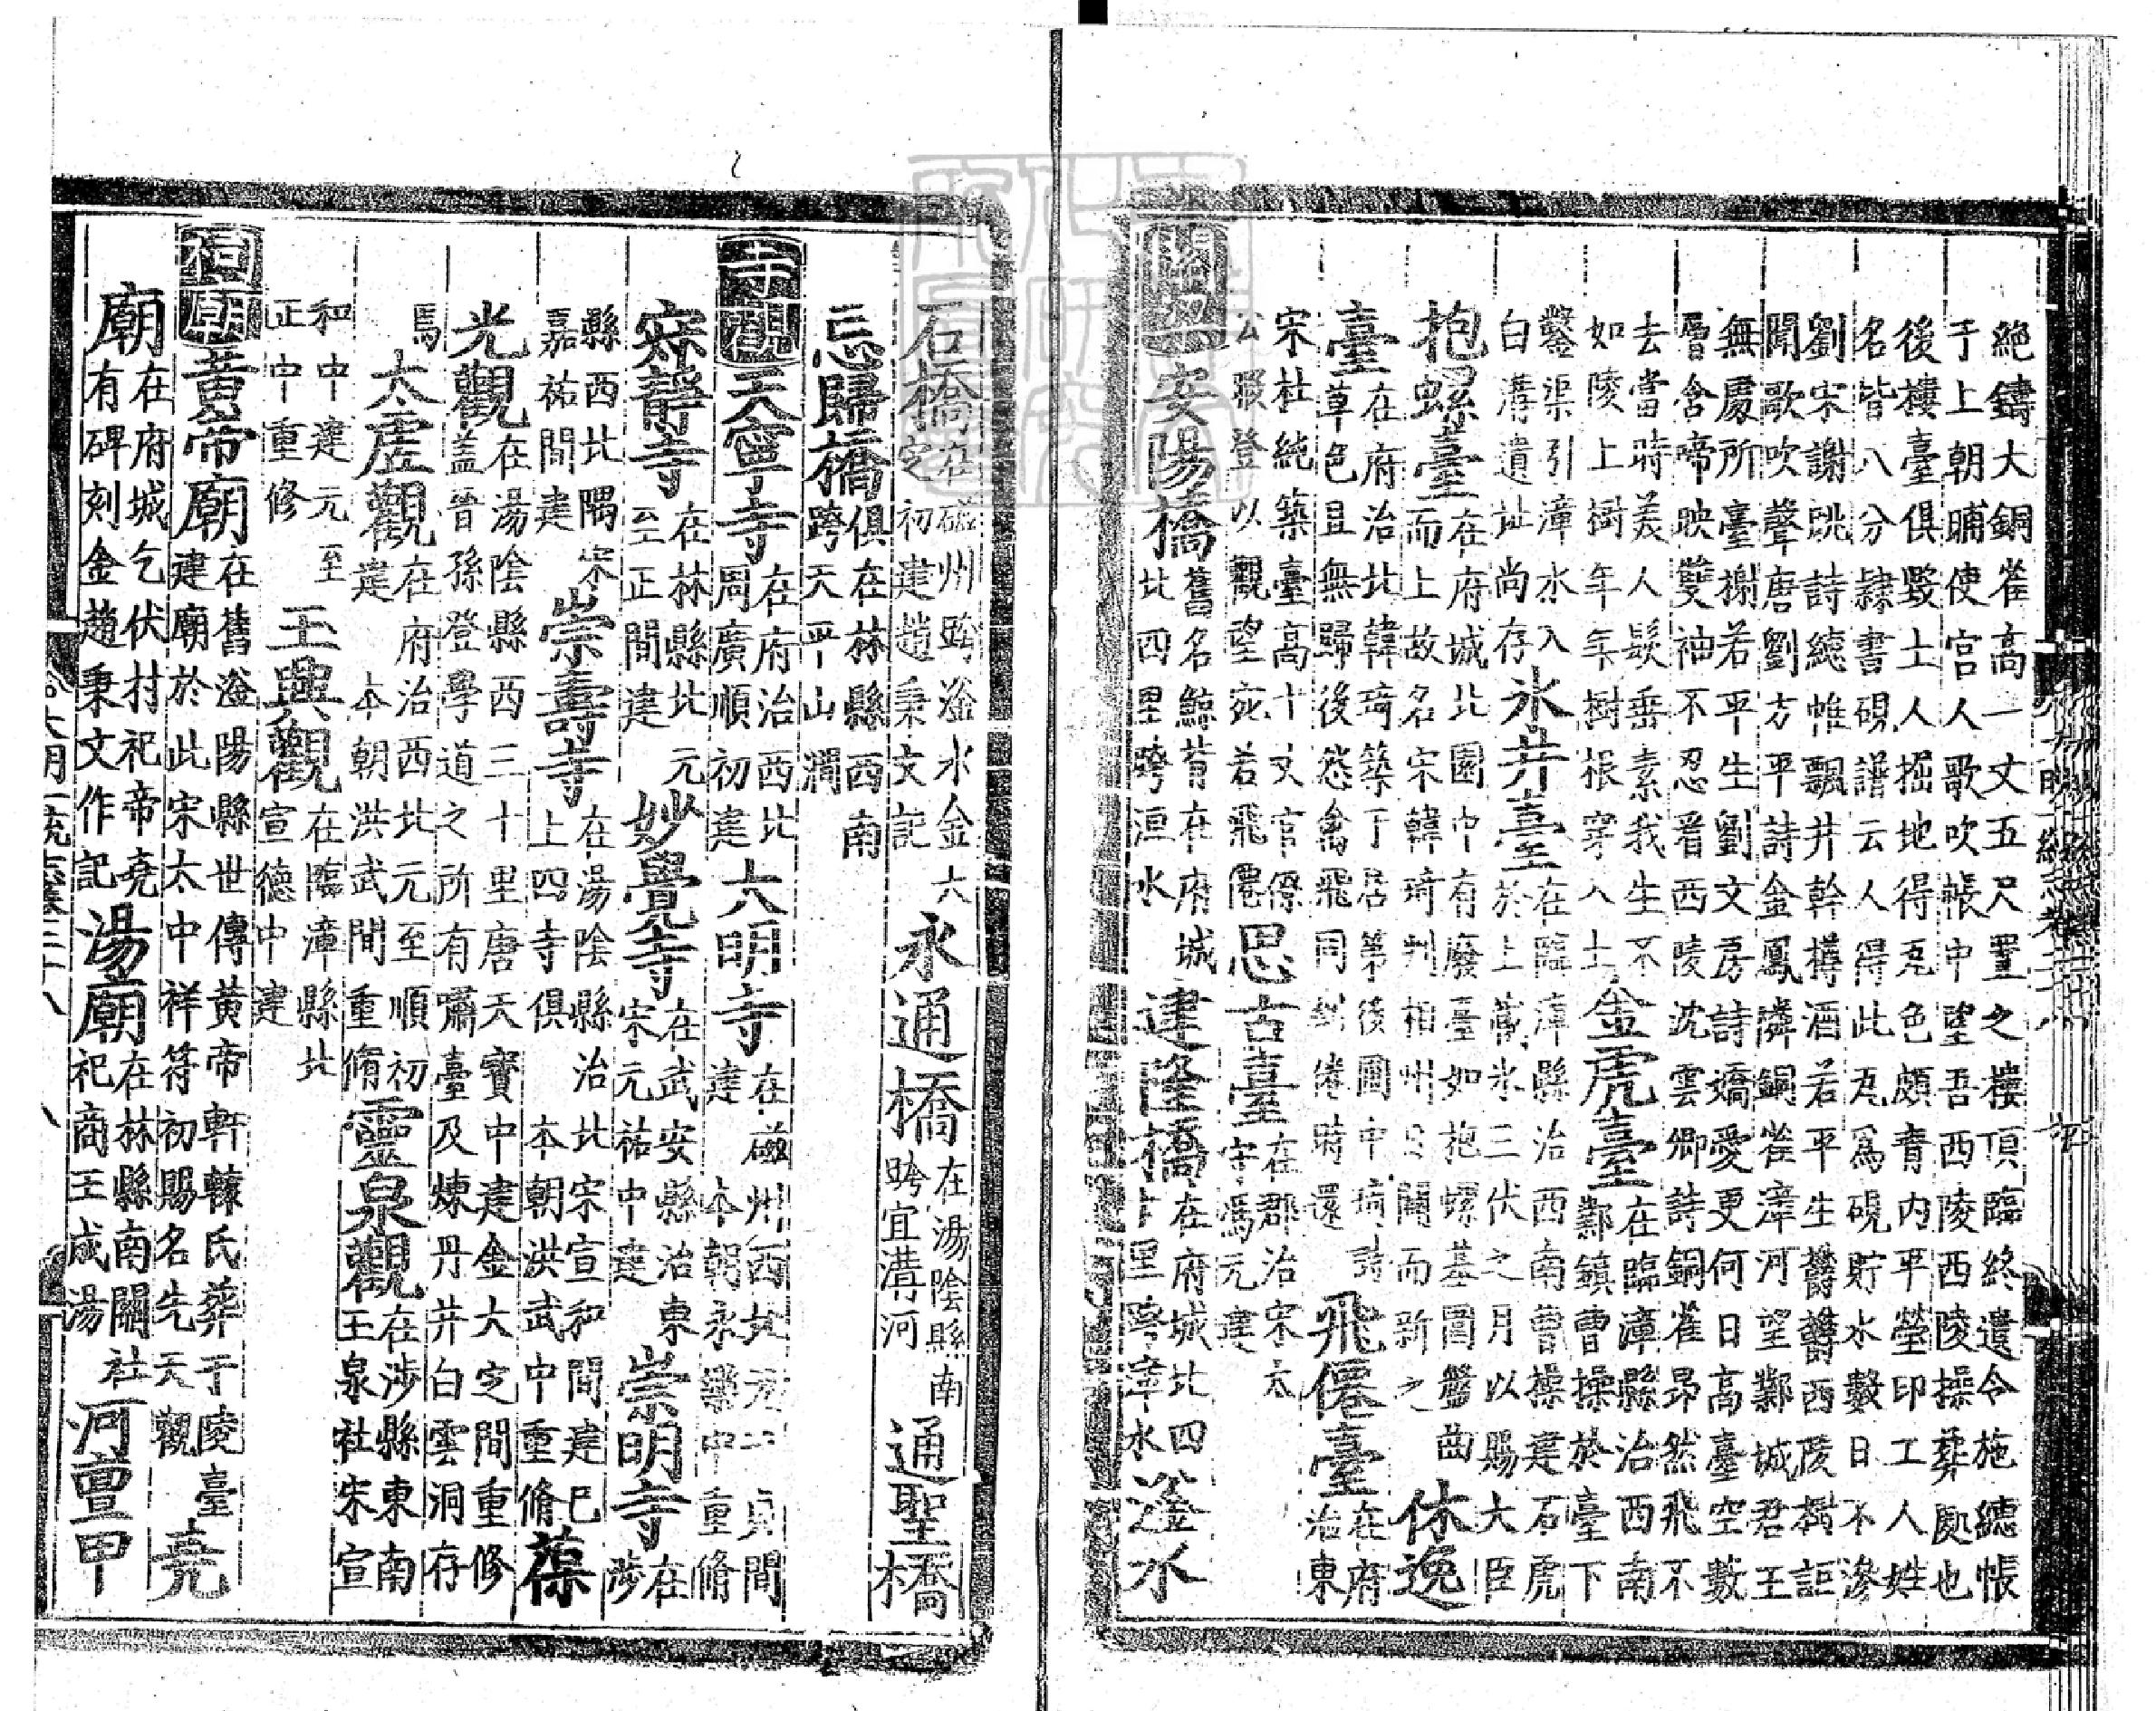 絶鑄大銅雀高一丈五尺置之樓頂臨終遺令施繐帳
于上朝晡使宮人歌吹帳中望吾西陵西陵操葬處也
後樓臺俱毀土人掘地得瓦色頗青内平瑩印工人姓
名皆八分隸書硯譜云人得此瓦爲硯貯水數日不滲
劉宋謝眺詩繐帷飄井幹樽酒若平生鬱鬱西陵樹詎
聞歌吹聲唐劉方平詩金鳳隣銅雀漳河望鄴城君王
無處所臺榭若平生劉文房詩嬌愛更何日高臺空數
層含啼映雙袖不忍看西陵沈雲卿詩銅雀昂然飛不
去當時美人髮垂素我生不
如陵上樹年年樹根穿入土
金虎臺
在臨漳縣治西南
鄴鎮曹操於臺下
鑿渠引漳水入
白溝遺址尚存
氷井臺
在臨漳縣治西南曹操建石虎
於上藏氷三伏之月以賜大臣
抱螺臺
在府城北園中有廢臺如抱螺基圓盤曲
而上故名宋韓琦判相州日闢而新之
休逸
臺
在府治北韓琦築于居第後園中琦詩
草色且無歸後慾禽飛同到倦時還
飛僊臺
在府
治東
宋杜純築臺高十丈官僚
公暇登以觀望宛若飛僊
思古臺
在郡治宋太
守馮元建
關梁
安陽橋
舊名鯨背在府城
北四里跨洹水
建隆橋
在府城北四
十里跨漳水
滏水
石橋
在磁州跨滏水金大
定初建趙秉文記
永通橋
在湯陰縣南
跨宜溝河
通聖橋
忘歸橋
俱在林縣西南
跨天平山澗
寺觀
天寧寺
在府治西北
周廣順初建
大明寺
在磁州西北元
本朝永樂中重脩
寂靜寺
在林縣北元
至正間建
妙覺寺
在武安縣治東
宋元祐中建
崇明寺
在
涉
縣西北隅宋
嘉祐間建
崇壽寺
在湯陰縣治北宋宣和間建已
上四寺俱本朝洪武中重脩
葆
光觀
在湯陰縣西三十里唐天寶中建金大定間重修
蓋晉孫登學道之所有嘯臺及煉丹井白雲洞存
焉
太虚觀
在府治西北元至順初
建本朝洪武間重脩
靈泉觀
在涉縣東南
王泉社宋宣
和中建元至
正中重修
王興觀
在臨漳縣北
宣德中建
祠廟
黃帝廟
在舊滏陽縣世傳黃帝軒轅氏葬于陵臺
建廟於此宋太中祥符初賜名先天觀
堯
廟
在府城乞伏村祀帝堯
有碑刻金趙秉文作記
湯廟
在林縣南關社
祀商王成湯
河亶甲
大明一統志卷二十八
八